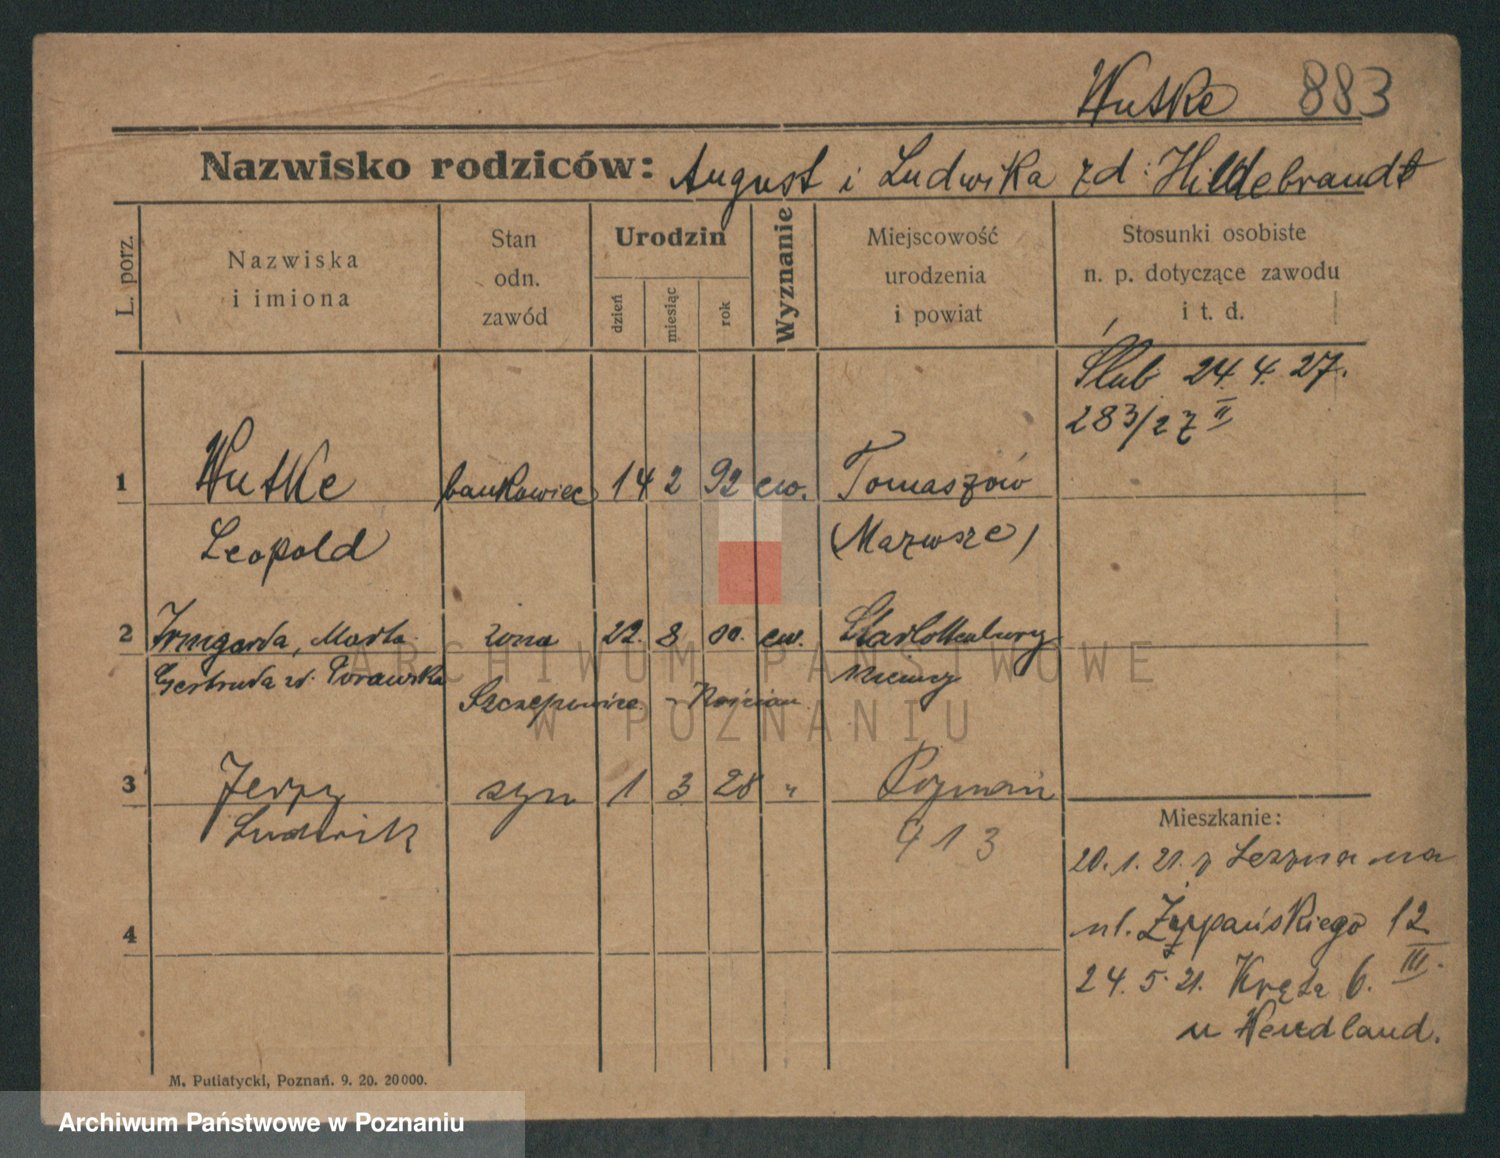 Wutke 883
Nazwisko rodziców: August i Ludwika zd. Hildebrandt
L. porz.
Nazwiska
i imiona
Stan
odn.
zawód
Urodzin
dzień
miesiąc
rok
Wyznanie
Miejscowość
urodzenia
i powiat
Stosunki osobiste
n. p. dotyczące zawodu
i t. d.
Ślub 24. 4. 27.
283/27 II
1 Wutke bankowiec 14 2 92 ew. Tomaszów
Leopold (Mazowsze)
2 Irmgarda, Marta żona 22. 8 00. ew. Szarlottenburg
Gertruda zd. Gorawska Niemcy
Szczepowice - Kościan
3 Jerzy syn 1 3 28 " Poznań
Ludwik 913
4
Mieszkanie:
20. 1. 21. z Leszna na
ul. Żupańskiego 12
III.
24. 5. 21. Kręta 6.
u Wendland.
M. Putiatycki, Poznań. 9. 20. 20000.
ARCHIWUM PAŃSTWOWE
W POZNANIU
Archiwum Państwowe w Poznaniu